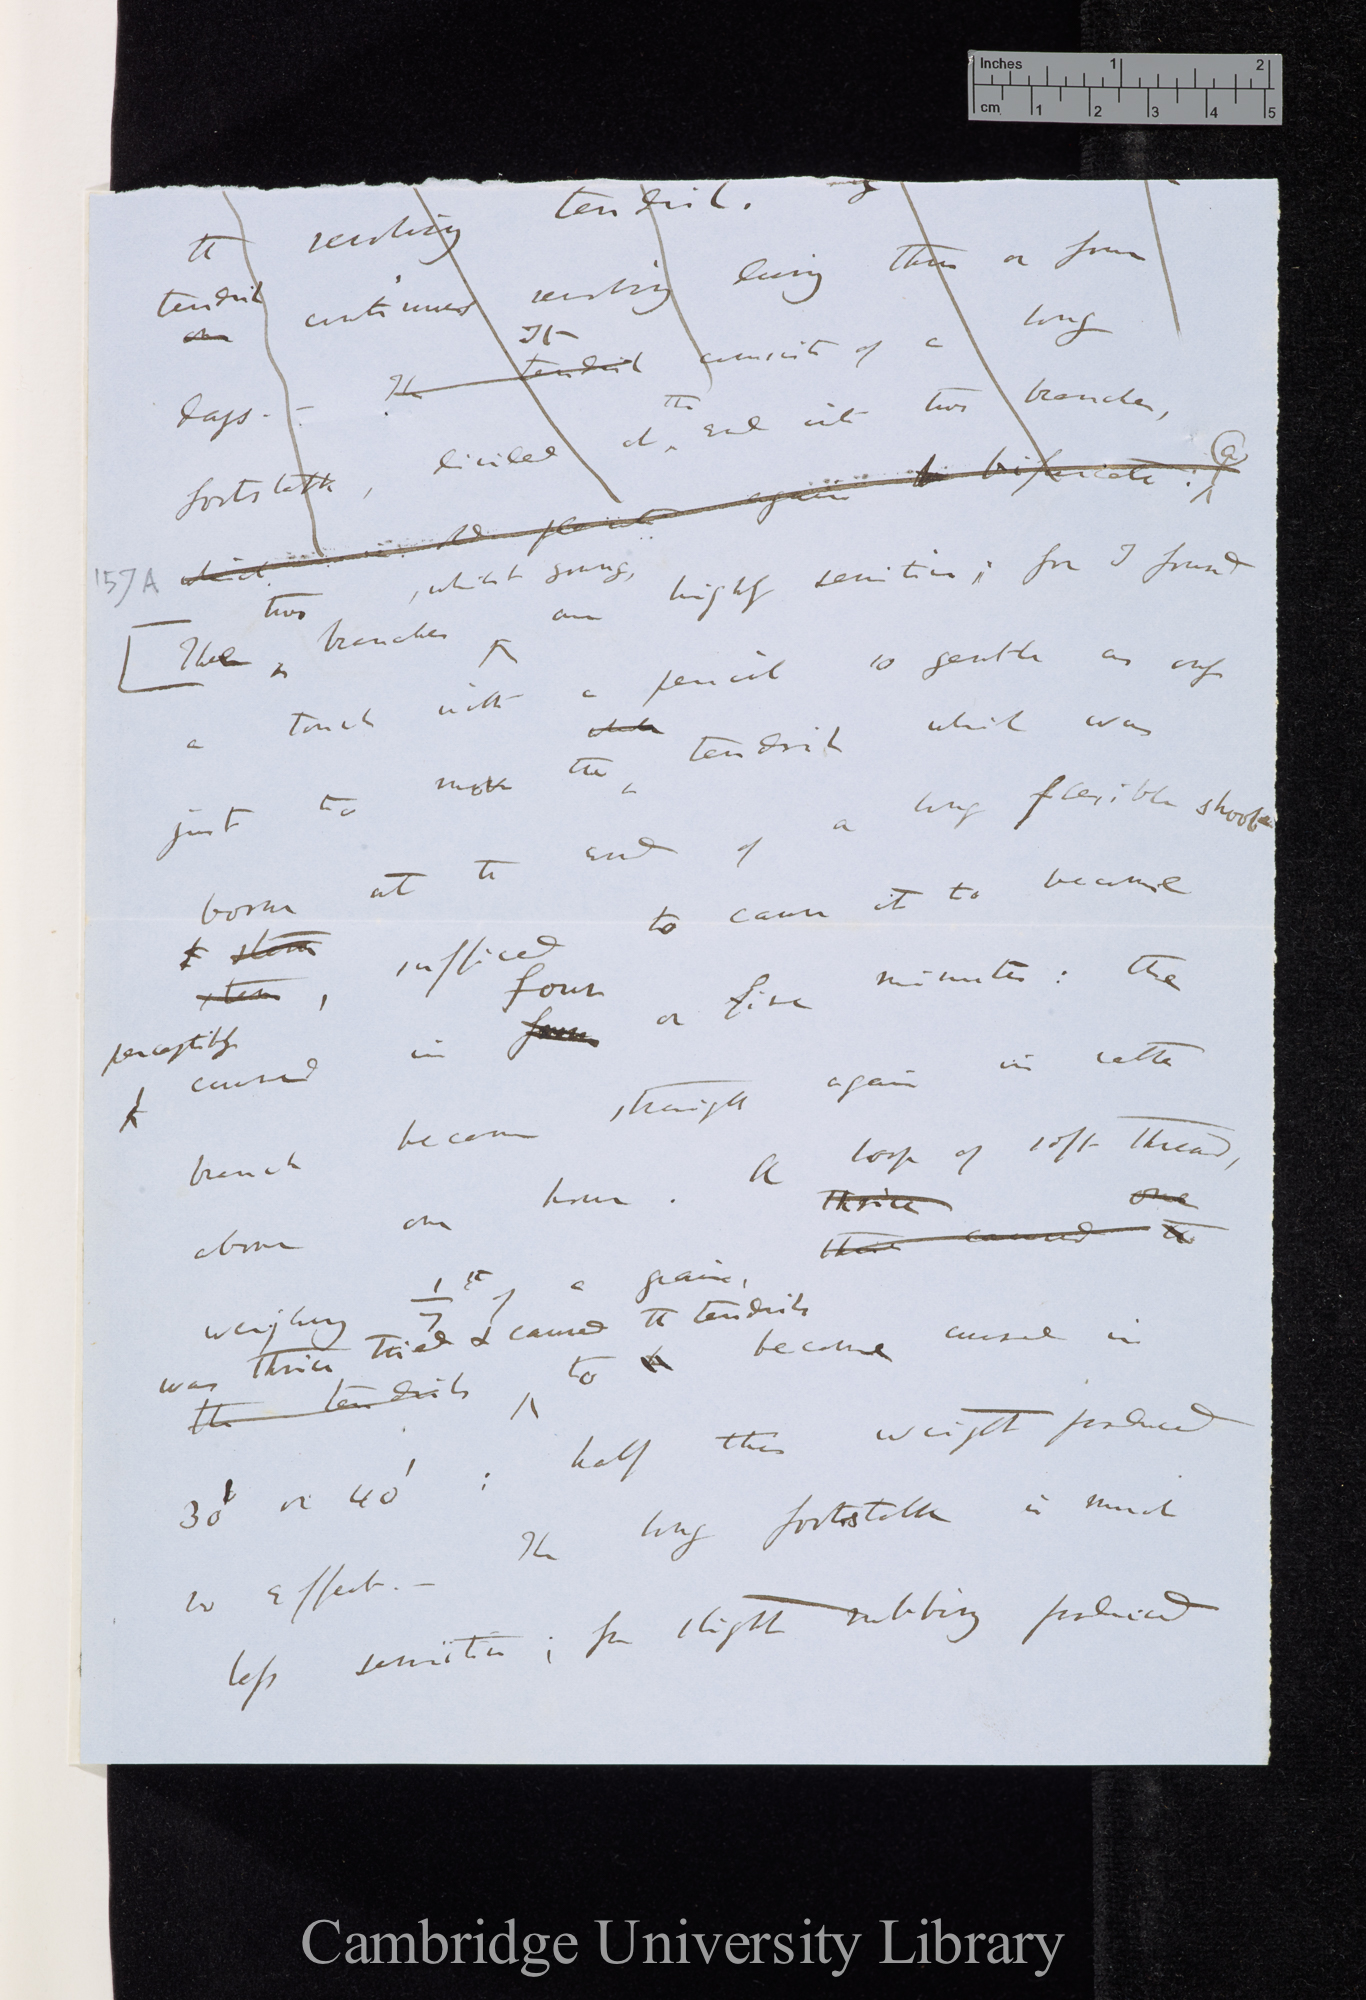 Inches 1 2
cm 1 2 3 4 5
the revolving tendril.
tendril continued revolving during three or four
days. — The tendril It consists of a long
footstalk, divided at the end into two branches,
which in old plants again bifurcate: a
157A
These two branches, whilst young, are highly sensitive; for I found
a touch with a pencil so gentle as only
just to move the tendril which was
borne at the end of a long flexible shoot
stem
stem, sufficed to cause it to become
perceptibly
curved in four four or five minutes: the
branch became straight again in rather
above one hour. A loop of soft thread,
thrice one
thrice caused to
weighing 1/7th of a grain,
was thrice tried & caused the tendrils
the tendrils to become curved in
30' or 40': half this weight produced
no effect. — The long footstalk is much
less sensitive; for slight rubbing produced
Cambridge University Library